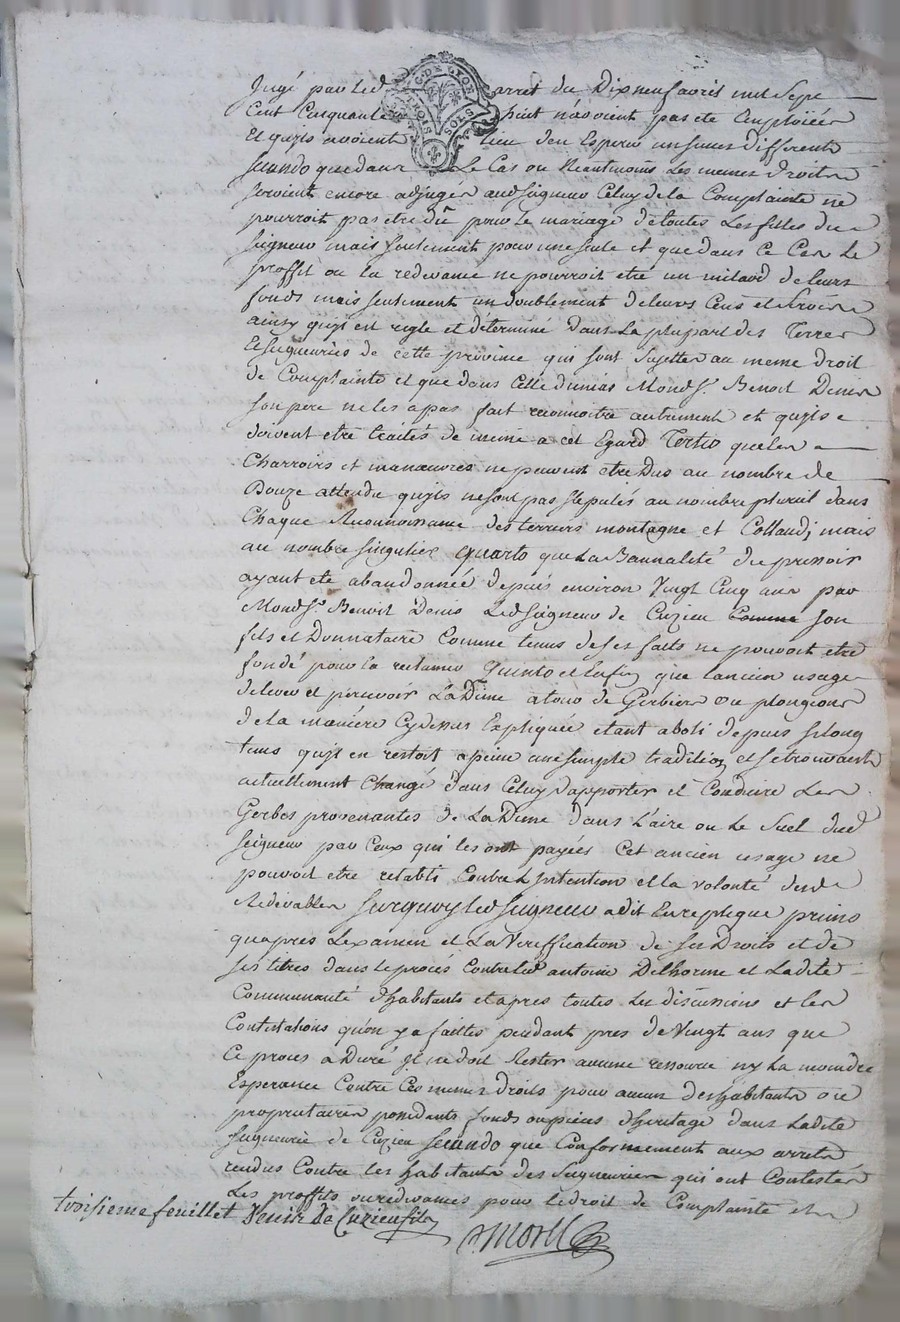 G. DE LYON
TROIS SOLS
Jugé par led arret du Dixneuf avril mil Sept
Cent Cinquante huit n'avoient pas eté Employées
Et quils avoient lieu den Esperer un succes different
secundo que dans Le Cas ou Neantmoins Les memes Droits
seroient encore adjugés aud seigneur Celuy de la Complainte ne
pourroit pas etre dû pour le mariage de toutes Les filles du
seigneur mais seulement pour une seule et que dans ce Cas Le
proffit ou la redevance ne pourroit etre un milaod de leurs
fonds mais seulement un doublement de leurs Cens et servis
ainsy quil est reglé et determiné dans La plupart des Terres
Et seigneuries de cette province qui sont sujettes au meme droit
de Complainte et que dans Celle dunias Mond Sr. Benoit Denis
son pere ne les a pas fait reconnoitre autrement et quils
doivent etre traités de meme a cet Egard Tertio que les
Charrois et manœuvres ne peuvent etre Dus au nombre de
Douze attendu quils ne sont pas stipulés au nombre pluriel dans
Chaque Reconnoissance des terriers montagne et Collaudj mais
au nombre singulier quarto que La Bannalité du pressoir
ayant eté abandonnée depuis environ vingt Cinq ans par
Mond Sr. Benoit Denis Led seigneur de Cuzieu Comme son
fils et Donnataire Comme tenus de ses faits ne pouvoit etre
fondé pour la reclamer quinto et Enfin que lancien usage
de lever et percevoir La Dime a tour de Gerbiers ou plongeons
de la maniere Cydessus Expliquée etant aboli depuis si long
tems quil en restoit a peine une simple tradition et se trouvant
actuellement Changé dans Celuy dapporter et Conduire Les
Gerbes provenantes de La Dime dans L'aire ou Le Suel dud
seigneur par Ceux qui les ont payées Cet ancien usage ne
pouvoit etre retabli Contre L'intention et la volonté desd
Redevables surquoy led seigneur a dit En replique primo
quapres Lexamen et La Veriffication de ses Droits et de
ses titres dans le procés Contre led antoine Delhorme et Ladite
Communauté d'habitants et apres toutes les discussions et les
Contestations qu'on y a faittes pendant pres de Vingt ans que
Ce procés a Duré il ne doit Rester aucune ressource ny La moindre
Esperance Contre Ces memes droits pour aucun des habitants ou
proprietaires possedants fonds ou pieces d'heritage dans Ladite
seigneurie de Cuzieu secundo que Conformement aux arrets
rendus Contre les habitants des seigneuries qui ont Contestés
Les proffits ou redevances pour le droit de Complainte et les
troisieme feuillet Denis de Cuzieu fils
Morel